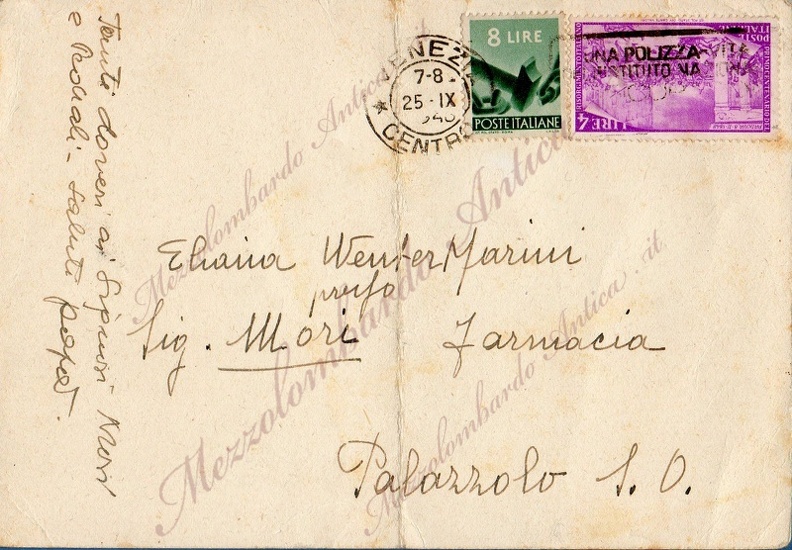 Tanti doveri ai Signori Mori
e Pedrali - Saluti papà.
VENEZIA
7-8
25·IX
1948
CENTRO
8 LIRE
POSTE ITALIANE
UNA POLIZZA VITA
ISTITUTO NA
POSTE ITALIANE
LIRE 4
Eliana Wenter Marini
presso
Sig. Mori Farmacia
Palazzolo S. O.
Mezzolombardo Antica .it
Mezzolombardo Antica
Mezzolombardo Antica .it